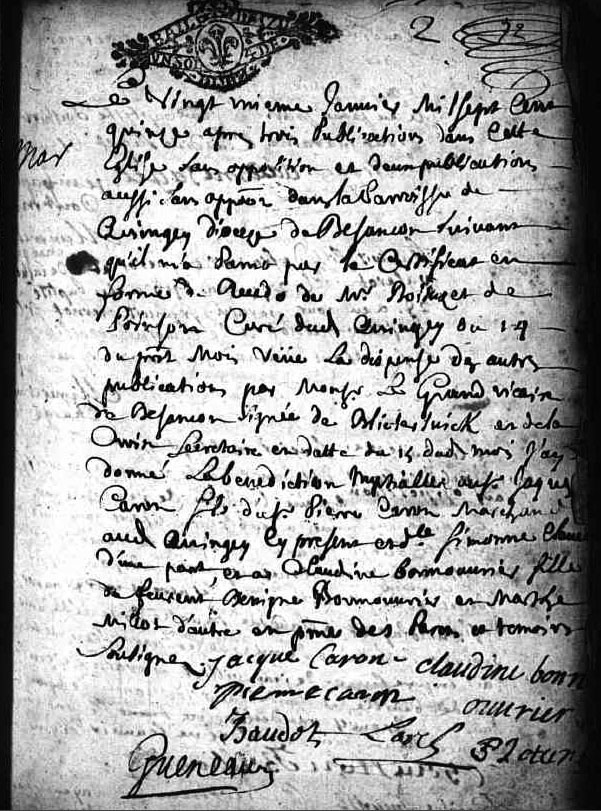 2
Le Vingt unieme Janvier Mil sept Cens
quinze apres trois Publications dans Cette
Mar
Eglise Sans opposition et deux publications
aussi Sans oppõn dans la Parroisse de
Quingey diocese de Besancon Suivant
qu'il m'a Paru par le Certificat en
forme de Mr de
Curé dud Quingey du 14
du pñt Mois Veüe La dispense des autres
publications par Monsr Le Grand vicaire
de Besancon signée de et de la
Secretaire en datte du 15 dud mois J'ay
donné La benediction Nuptialle au Sr Jaque
Caron fils du Sr Pierre Caron Marchand
aud Quingey Cy present et dlle Simonne
d'une part, et a Claudine bonnouvrier fille
de feu Benigne Bonnouvrier et Marthe
Millot d'autre en pñce des Parens et temoins
Soussignez. Jacque Caron claudine bonn
ouvrier
pierre caron
Baudot
Gueneau